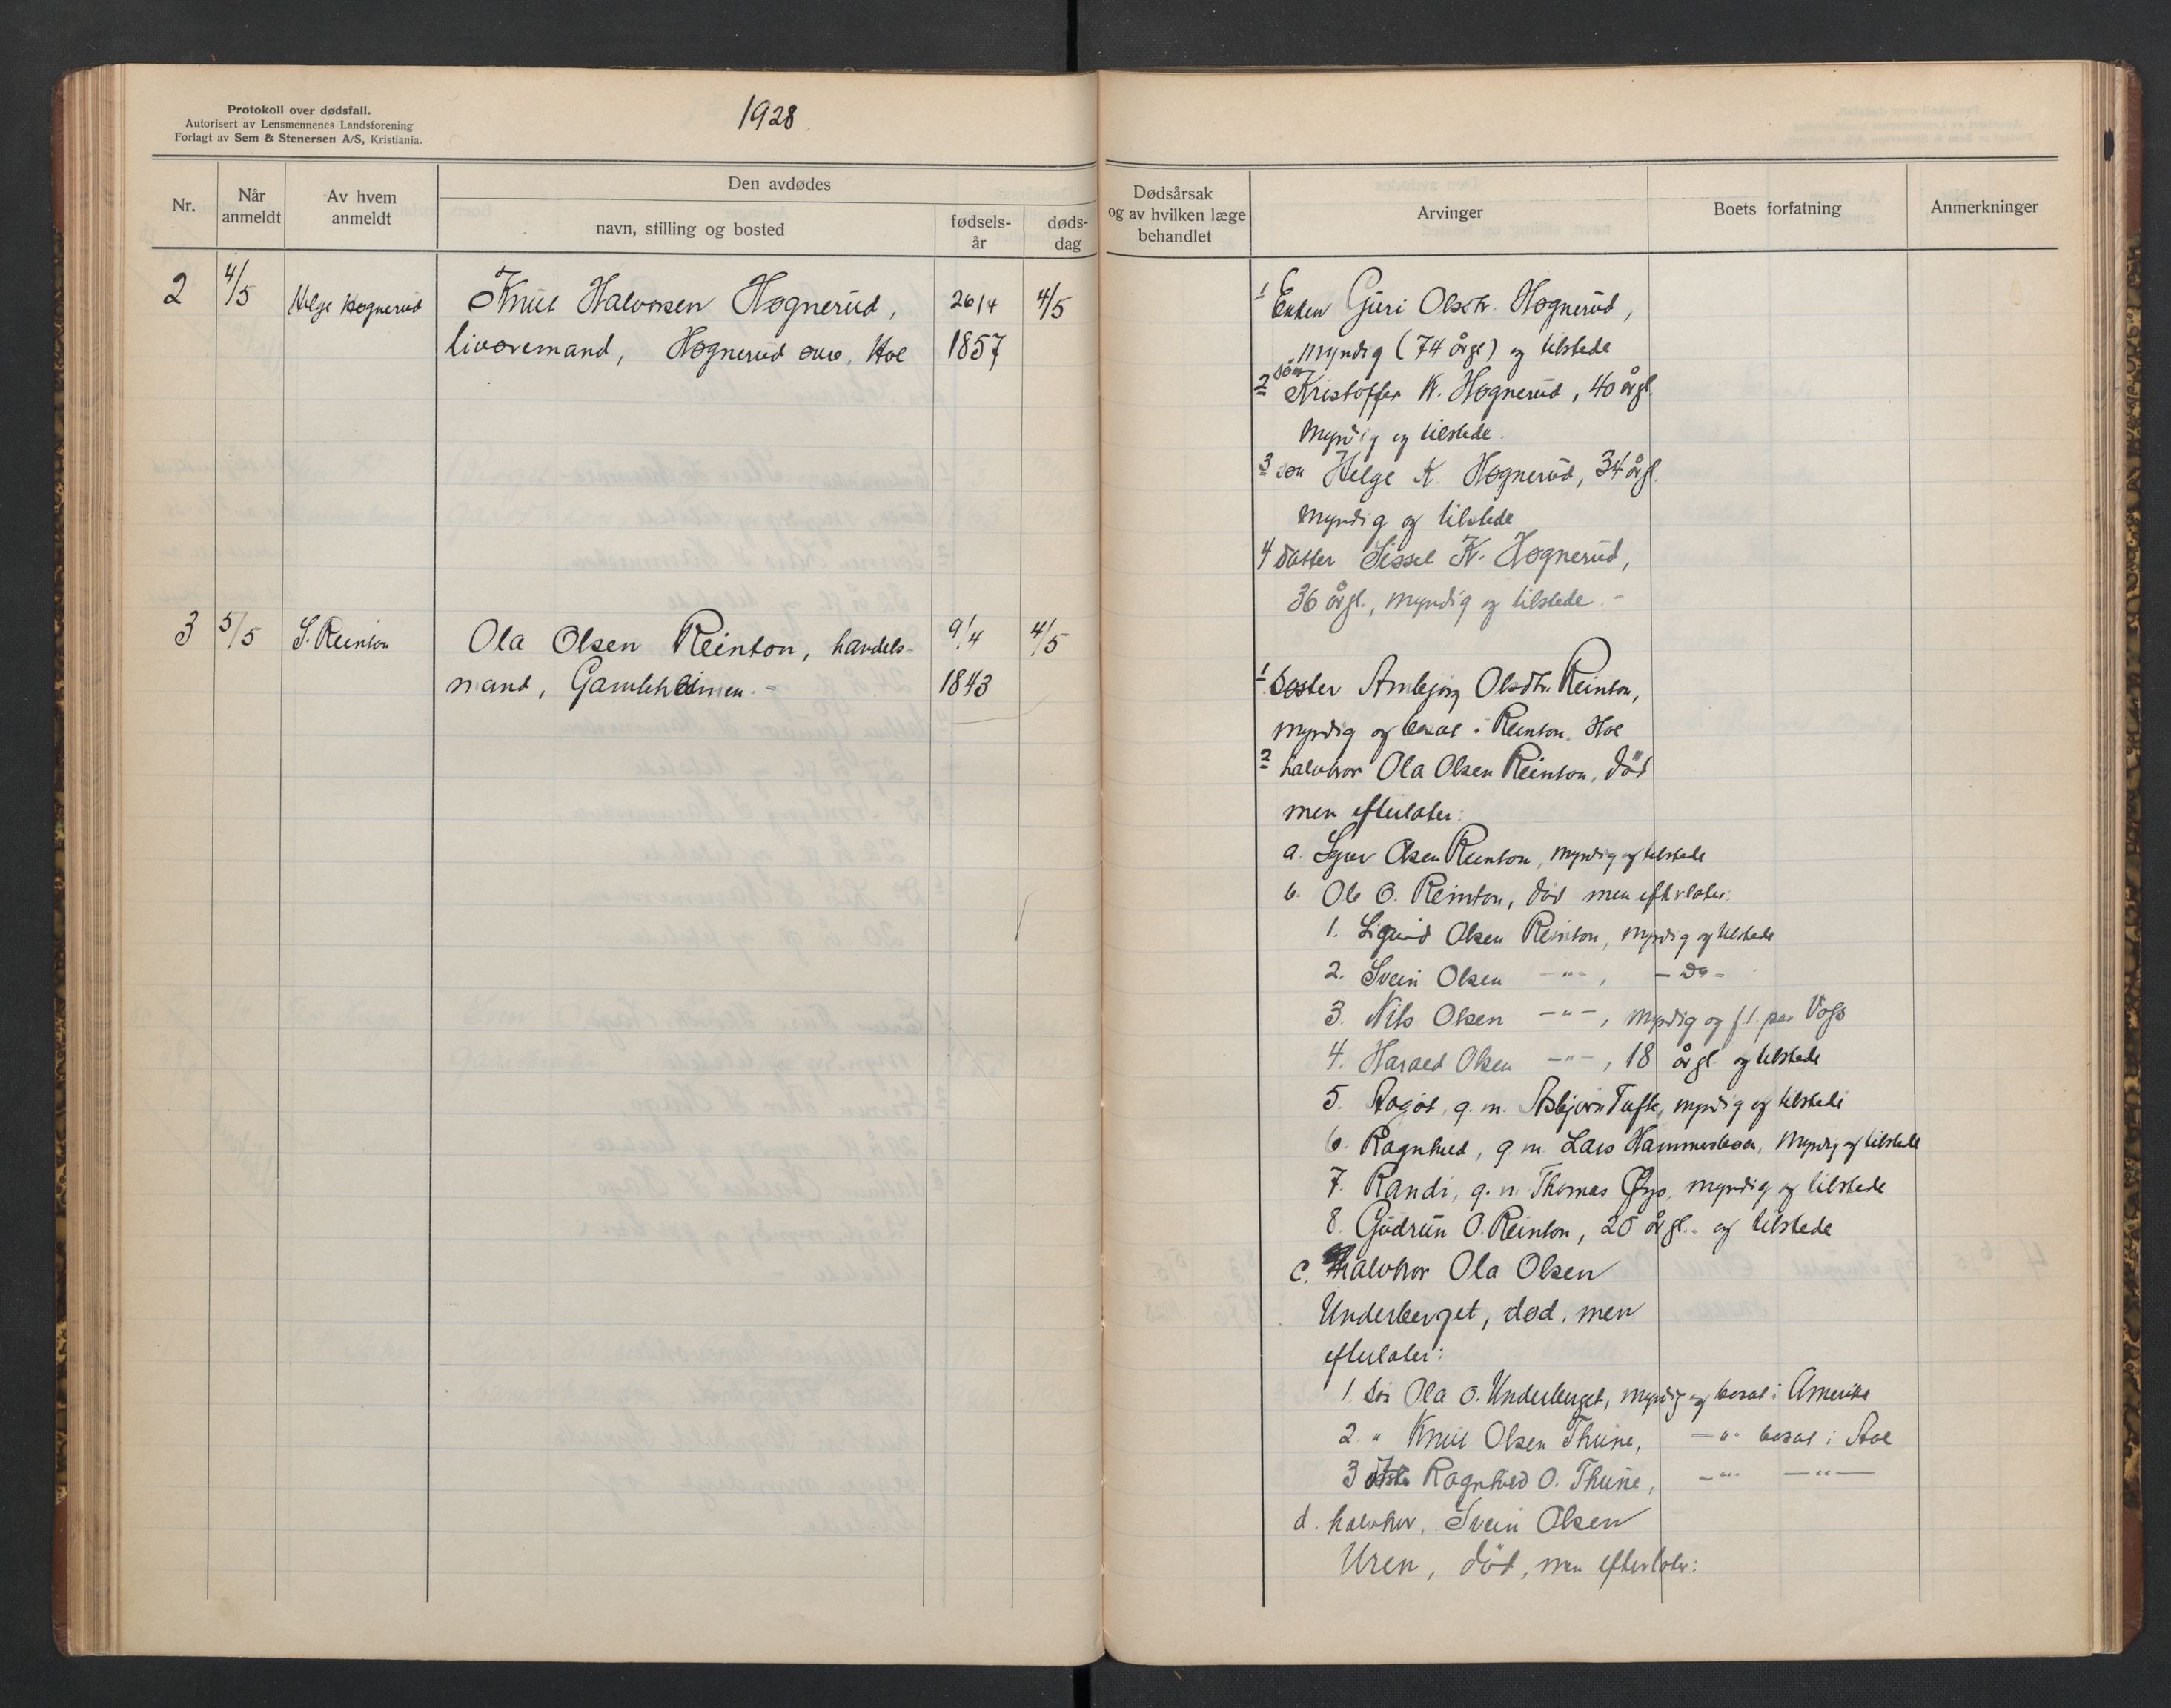 Protokoll over dødsfall.
Autorisert av Lensmennenes Landsforening
Forlagt av Sem & Stenersen A/S, Kristiania.
1928
Nr.
Når anmeldt
Av hvem anmeldt
Den avdødes
navn, stilling og bosted
fødsels-år
døds-dag
Dødsårsak og av hvilken læge behandlet
Arvinger
Boets forfatning
Anmerkninger
2 4/5 Helge Høgnerud Knut Halvorsen Høgnerud, 26/4 4/5
livøremand, Høgnerud Hol 1857
1 Enken Guri Olsdtr. Høgnerud,
myndig (74 årgl) og tilstede
2 søn Kristoffer K. Høgnerud, 40 årgl.
Myndig og tilstede.
3 søn Helge K. Høgnerud, 34 årgl.
Myndig og tilstede
4 datter Sissel K. Høgnerud,
36 årgl., myndig og tilstede. -
3 5/5 S. Reinton Ola Olsen Reinton, handels- 9/4 4/5
mand, Gamleheimen. - 1843
1 Søster Ambjørg Olsdtr. Reinton,
myndig og bosat i Reinton, Hol
2 halvbror Ola Olsen Reinton, død
men efterlater:
a. Syver Olsen Reinton, myndig og tilstede
b. Ole O. Reinton, død men efterlater:
1. Sigurd Olsen Reinton, myndig og tilstede
2. Svein Olsen -"-, - do -
3. Nils Olsen -"-, myndig og f.t. paa Voss
4. Harald Olsen -"-, 18 årgl. og tilstede
5. Aagot, g. m. Asbjørn Tufte, myndig og tilstede
6. Ragnhild, g. m. Lars Hammersbøen, Myndig og tilstede
7. Randi, g. m. Thomas myndig og tilstede
8. Gudrun O. Reinton, 20 årgl. og tilstede
c. Halvbror Ola Olsen
Underberget, død, men
efterlater:
1. Søn Ola O. Underberget, myndig og bosat i Amerika
2. " Knut Olsen Thune, -"- bosat i Aal
3 Ragnhild O. Thune, -"- -"-
d. halvbror, Svein Olsen
Uren, død, men efterlater: